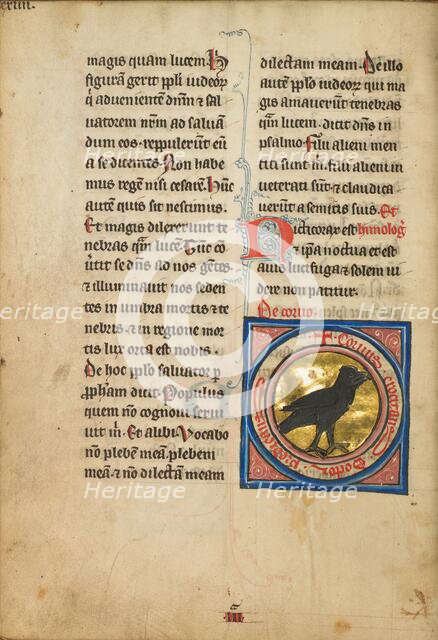 magis quam lucem. H
figurā gerit ppl'i iudeoꝝ
q̇ aduenientē dnm̄ ⁊ sal
uatorem nrm̄ ad saluan
dum eos· reppulerūt eū
a se dicentes. Non habe
mus regē nisi cesarē. Hūc
autē quis sit nescimus.
Et magis dilexerunt te
nebras q̄m lucē. Tūc cō
u̇tit se dn̄s ad nos gētes
⁊ illuminauit nos seden
tes in umbra mortis ⁊ te
nebris· ⁊ in regione mor
tis lux orta est nobis.
De hoc pplo saluator ꝑ
ꝓphām dicit. Populus
quem nō cognoui serui
uit m̄. Et alibi. Vocabo
nō plebē meā· plebem
meā· ⁊ nō dilectā meam
dilectam meam. De illo
autē pplo iudeoꝝ qui ma
gis amauerūt tenebras
q̄m lucem. dicit dn̄s in
psalmo. Filii alieni men
titi sunt m̄. filii alieni in
ueterati sūt· ⁊ claudica
uerūt a semitis suis. Et
Nicticorax est
⁊ ip̄a noctua et est
auis lucifuga· ⁊ solem ui
dere non patitur.
De coruo.
Coruus
III
Heritage
Heritage
Heritage
Heritage
Heritage
Heritage